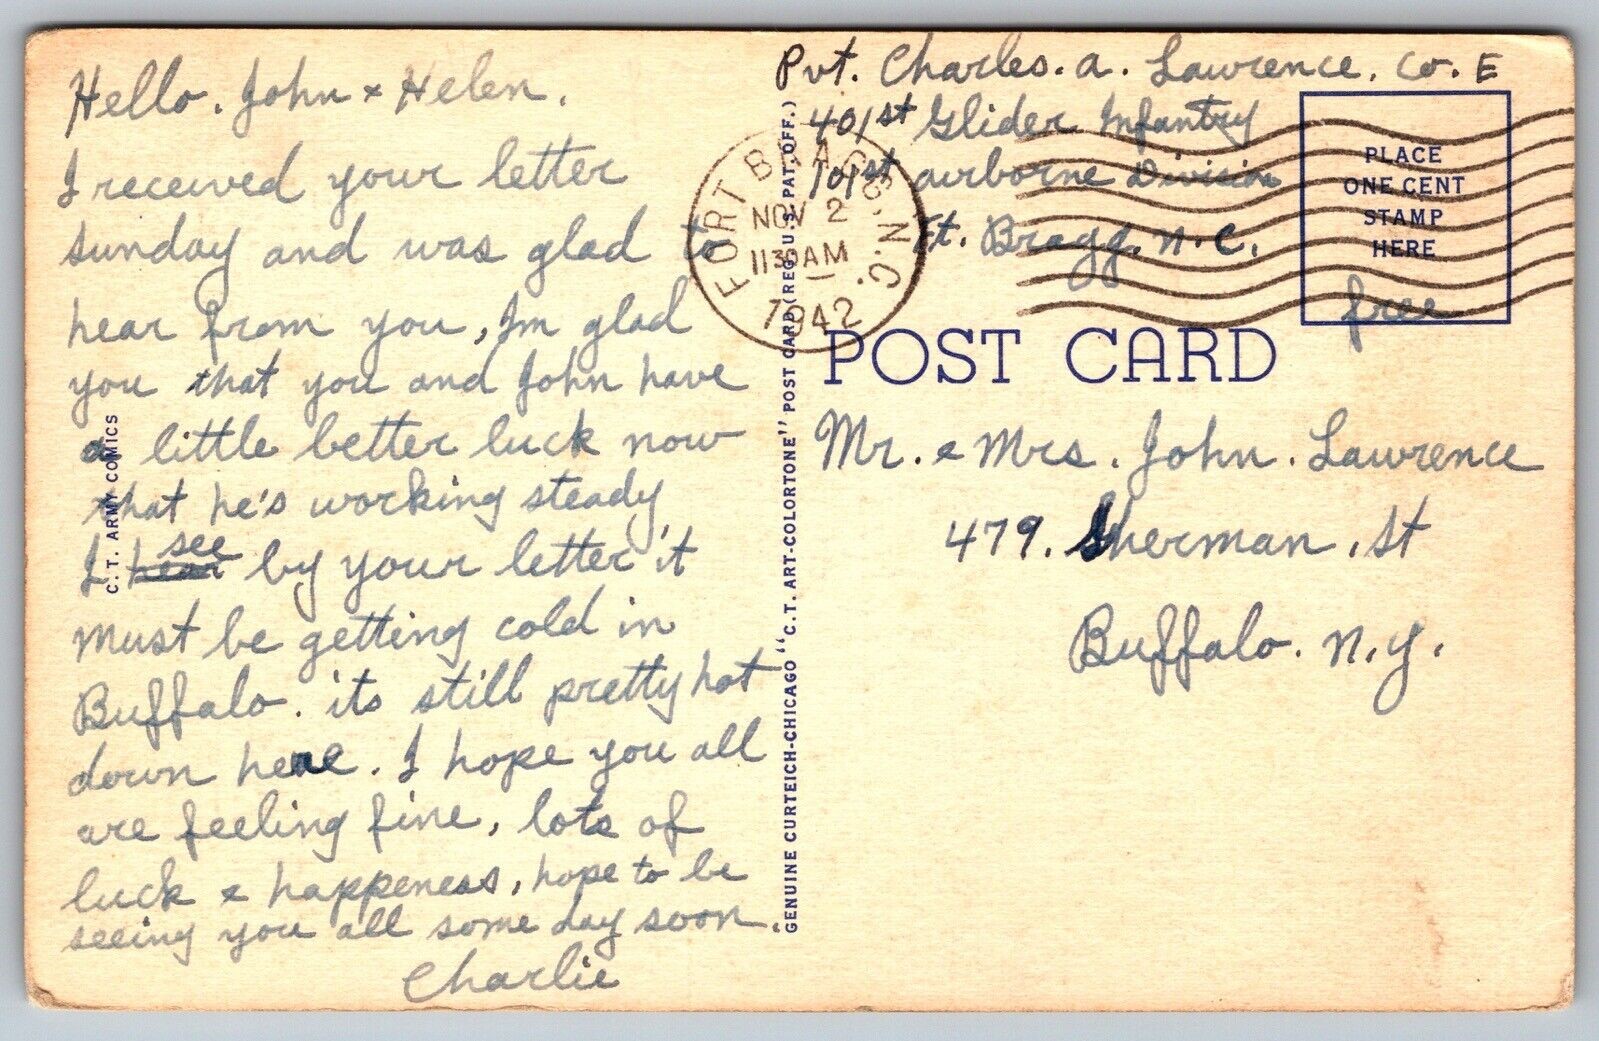 Hello. John & Helen.
I received your letter
sunday and was glad to
hear from you, Im glad
you that you and John have
a little better luck now
that he's working steady
I hear see by your letter it
must be getting cold in
Buffalo. its still pretty hot
down here. I hope you all
are feeling fine, lots of
luck & happeness, hope to be
seeing you all some day soon.
Charlie
C. T. ARMY COMICS
GENUINE CURTEICH-CHICAGO "C. T. ART-COLORTONE" POST CARD (REG. U.S. PAT. OFF.)
Pvt. Charles. A. Lawrence. Co. E
401st Glider Infantry
101st airborne Division
Ft. Bragg. N.C.
FORT BRAGG, N.C.
NOV 2
1130 AM
1942
PLACE
ONE CENT
STAMP
HERE
free
POST CARD
Mr. & Mrs. John. Lawrence
479. Sherman. St
Buffalo. N.Y.